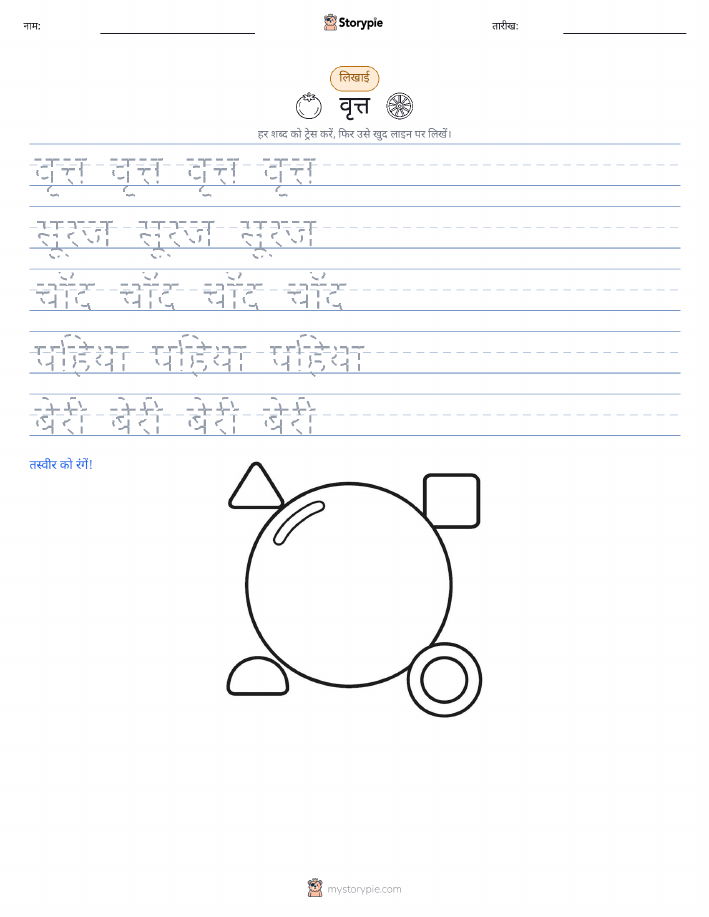 नाम: Storypie तारीख:
लिखाई
वृत्त
हर शब्द को ट्रेस करें, फिर उसे खुद लाइन पर लिखें।
वृत्त वृत्त वृत्त वृत्त
सूरज सूरज सूरज
चाँद चाँद चाँद चाँद
पहिया पहिया पहिया
बेरी बेरी बेरी बेरी
तस्वीर को रंगें!
mystorypie.com